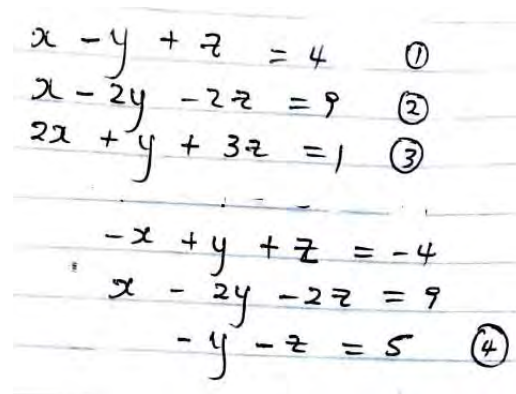 x - y + z = 4 ①
x - 2y - 2z = 9 ②
2x + y + 3z = 1 ③
-x + y + z = -4
x - 2y - 2z = 9
-y - z = 5 ④